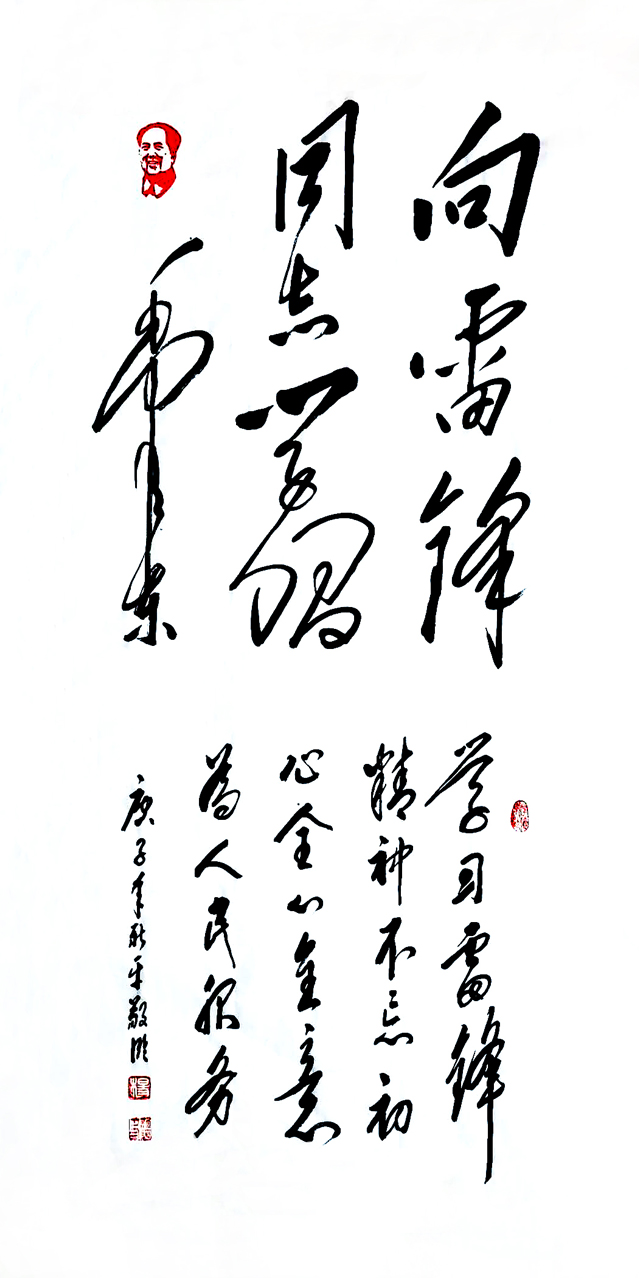 向雷锋
同志学習
毛泽东
学习雷锋
精神不忘初
心全心全意
為人民服务
庚子年秋平敬